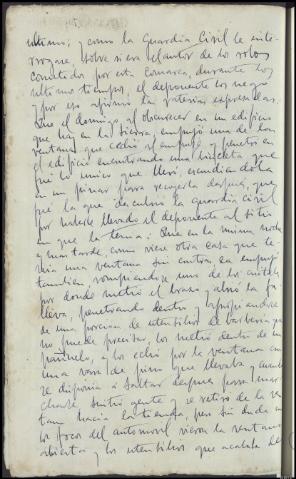 ultimo; y como la Guardia Civil le inte-
rrogase, sobre si era el autor de los robos
cometidos por esta comarca, durante los
ultimos tiempos, el deponente los negó
y por eso afirmó la
Que el domingo al obscurecer en un edificio
que hay en la Sierra, empujó una de las
ventanas que cedió al empuje y penetró en
el edificio encontrando una bicicleta que
fué lo unico que llevó, escondiendola
en un pinar para recogerla despues, que
fué la que descubrió la guardia civil
por haberle llevado el deponente al sitio
en que la tenia: Que en la misma noche
y mas tarde, como viese otra casa que te-
nia una ventana sin contra la empujó
tambien rompiendose uno de los cristales
por donde metió el brazo y abrió la fa-
lleva, penetrando dentro, apropiandose
de una porcion de utensilios de barberia que
no puede precisar, los metió dentro de un
pañuelo, y los echó por la ventana con
una vara de pino que llevaba, y cuando
se disponia a saltar despues para mar-
charse, sintió gente y se retiró de la ven-
tana hacia la tienda, pero sin duda con
los focos del automovil vieron la ventana
abierta y los utensilios que acababa de